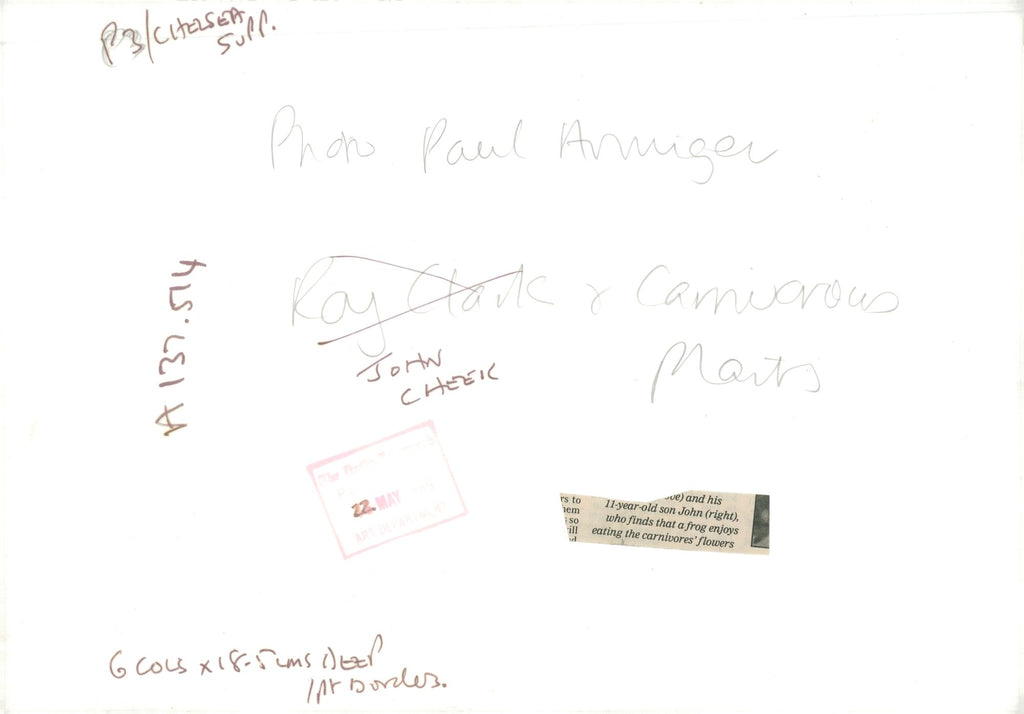 P3/CHELSEA
SUPP.
Photo Paul Armiger
Ray Clark & Carnivorous
Plants
JOHN
CHEEK
A 137.574
22 MAY
ART DEPARTMENT
ove) and his
11-year-old son John (right),
who finds that a frog enjoys
eating the carnivores' flowers
rs to
hem
so
ill
6 COLS x 18.5 cms DEEP
1pt Borders.